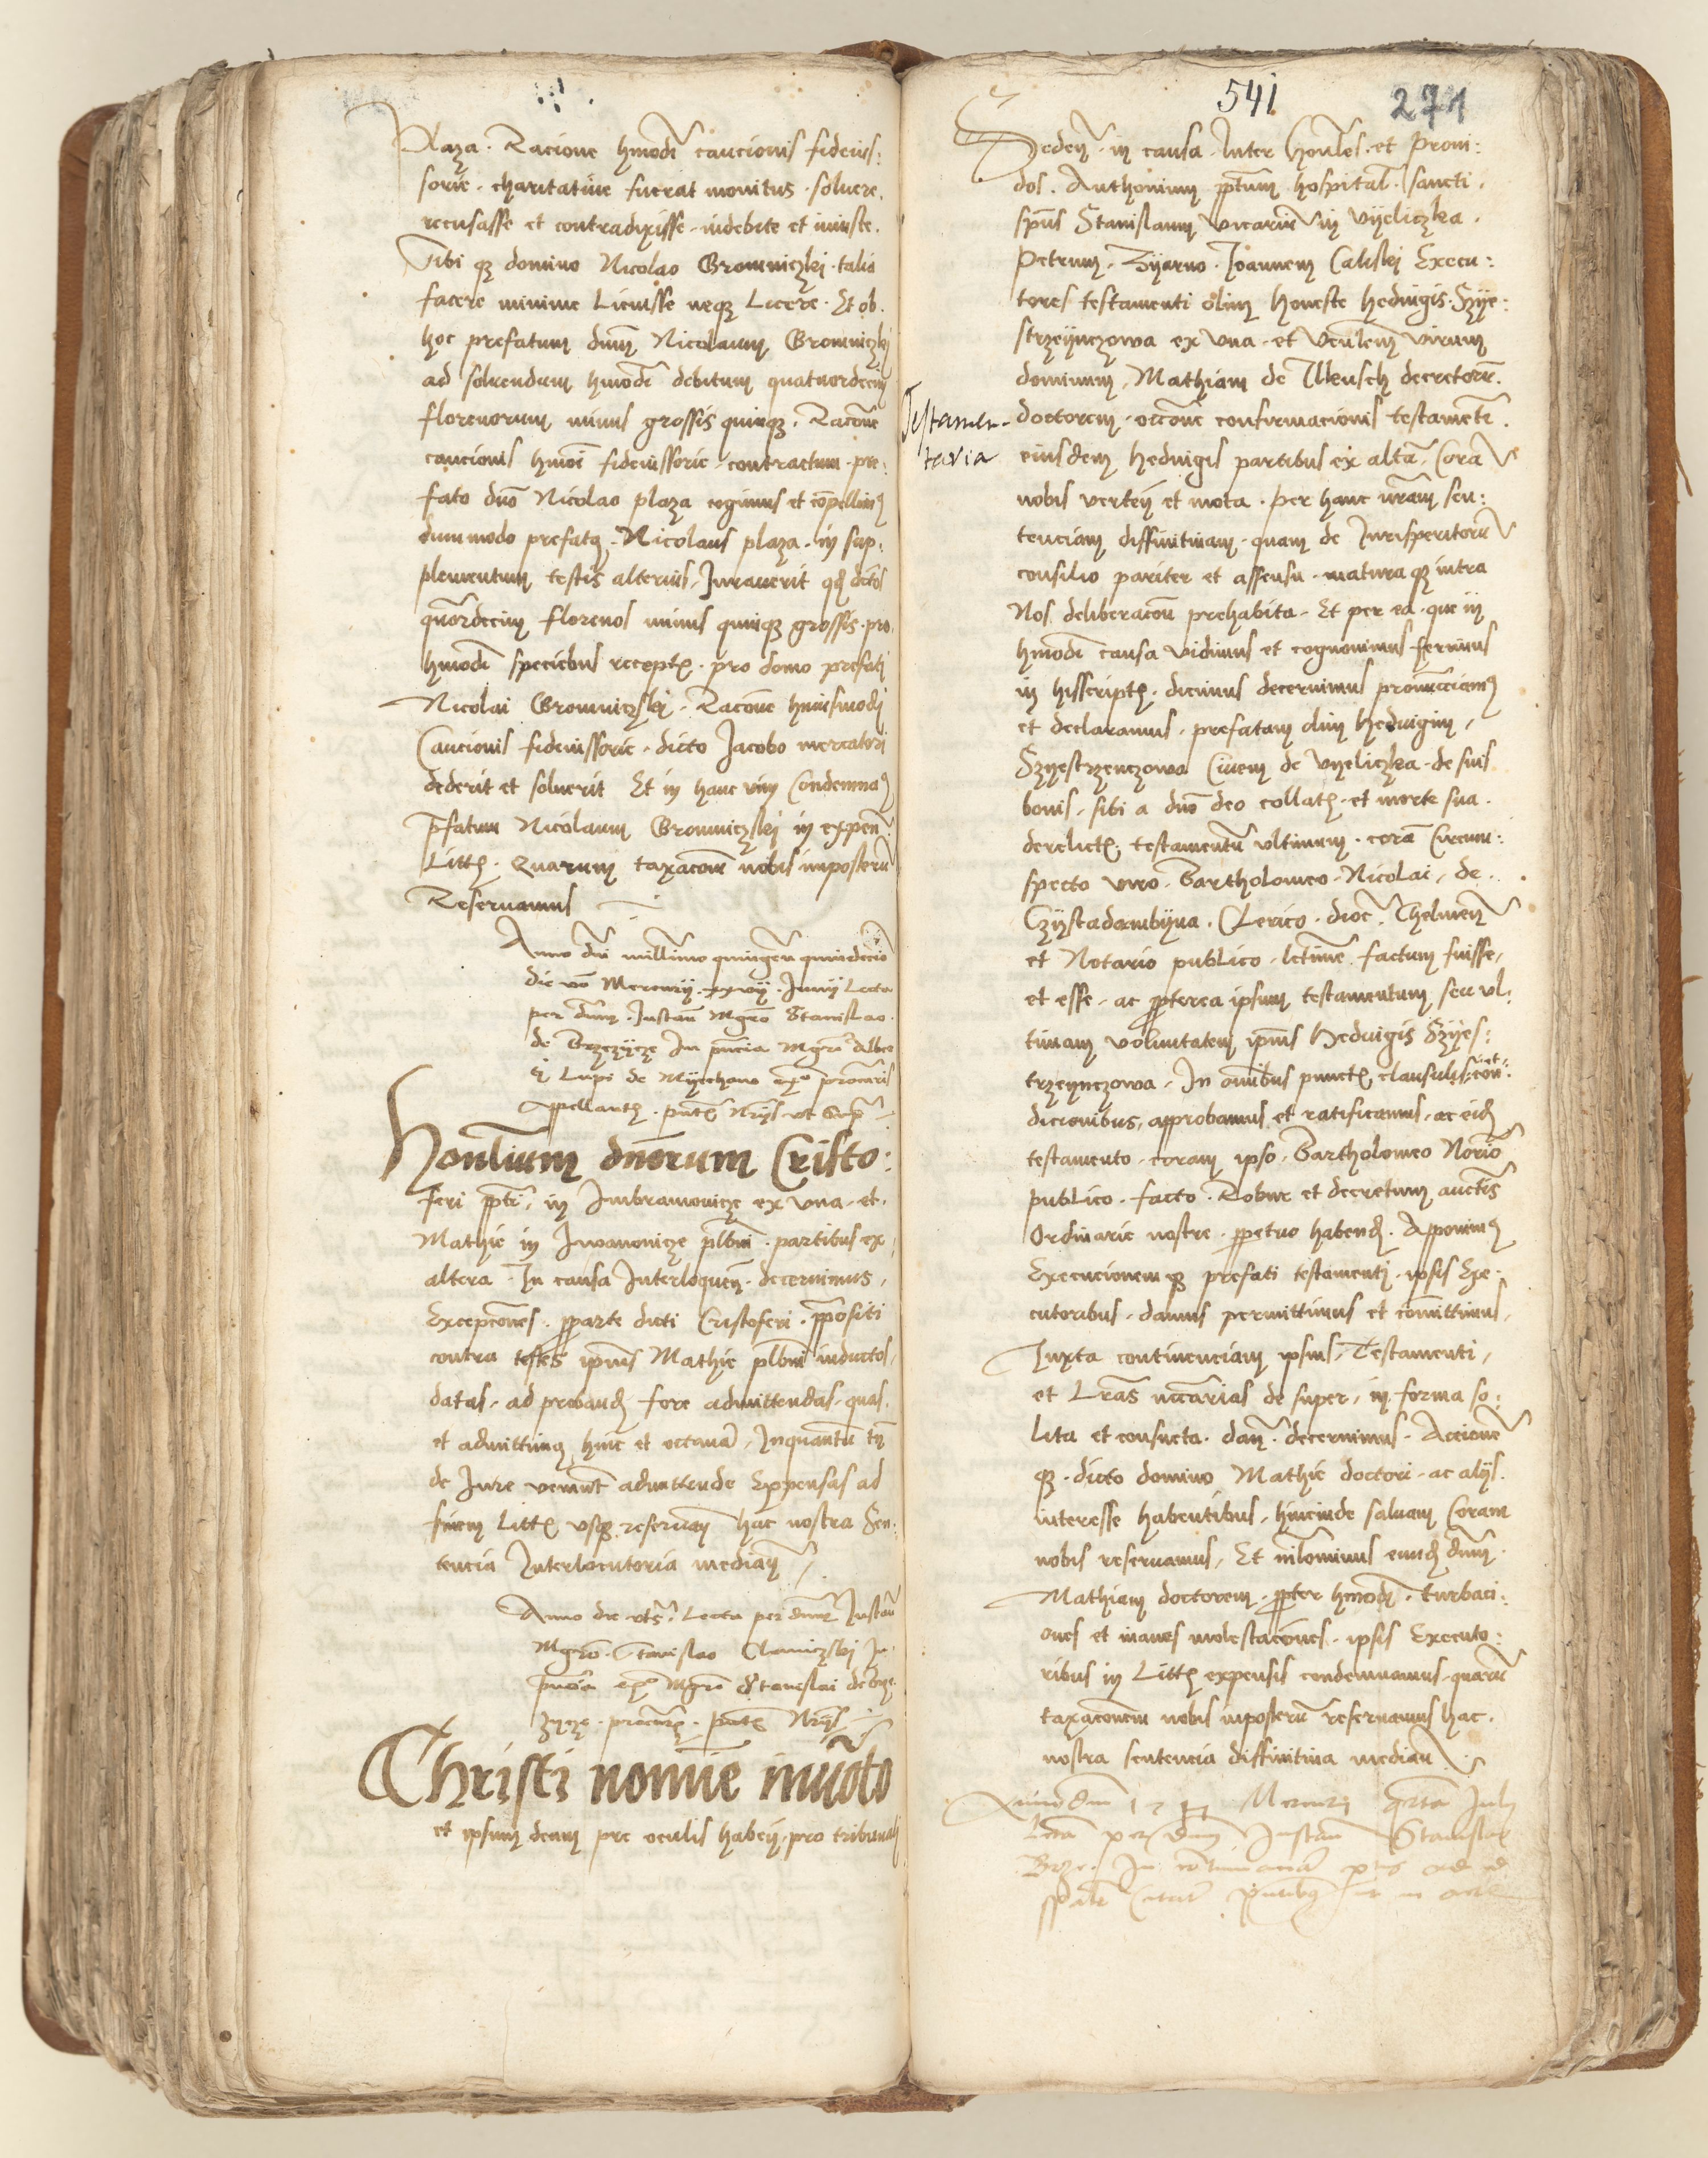 Plaza. Racione hmodi caucionis fideius:
sorie. charitatiue fuerat monitus. soluere.
recusasse et contradixisse. indebite et iniuste.
Sibi qz domino Nicolao Gromniczkj. talia
facere minime Licuisse neqz Licere. Et ob.
hoc prefatum dnm Nicolaum Gromniczkj
ad soluendum hmodi debitum quatuordecim
florenorum minus grossis quinqz. Racone
caucionis hmoi fideiussorie. contractum. pre:
fato dno Nicolao plaza cogimus et compellimus
dummodo prefatus. Nicolaus plaza. in sup:
plementum testis alterius. Jurauerit qd dictos
quordecim florenos minus quinqz grossis. pro.
hmodi speciebus receptis. pro domo prefati
Nicolai Gromniczkj. Racone huiusmodi
Caucionis fideiussorie. dicto Jacobo mercatori
dederit et soluerit Et in hanc vim Condemnamus
pfatum Nicolaum Gromniczkj in expen.
Littis. Quarum taxacom nobis imposterum
Reseruamus
Anno dni millimo quingen quindecimo
die vo Mercurij. xxvij. Junij Lecta
per dnm. Justan Mgro Stanislao.
de Brzezycze In pncia Mgri Alber
ti Lupi de Myechow ex procuris
Appellantis. pntis Nrijs vt Supra
Honlium dnorum Cristo:
feri ptri. in Imbramowicze ex vna. et.
Mathie in Jwanowicze plbni. partibus ex
altera. In causa Interloquen. decernimus,
Excepcones. pparte dicti Cristoferi. ppositi
contra testes ipius Mathie plbni inductos,
datas. ad proband fore admittendas. quas.
et admittimus hinc et octaua. Inquantu tn
de Jure veniunt admittende Expensas ad
finem Littis vsqz reseruan hac nostra Sen:
tencia Interlocutoria median
Anno die vts. Lecta per dnm Justan
Mgro. Stanislao Chwiczkj In
pncia ex Mgri Stanislai de Brze
zycze. procuris. pntis Nrijs
Christi nomine inuoto
et ipsum deum pre oculis haben. pro tribunali
541
271
Seden. in causa. Inter Honles. et Proui:
dos. Anthonium pptum hospital. sancti.
spus Stanislaum vicariu in Vyeliczka.
Petrum. Zyarno. Joannem Caliskj Execu:
tores testamenti olim honeste Heduigis. Szye:
strzeynczowa ex vna. et venlem virum
dominum. Mathiam de Ilkusch decretoru.
Testamen-
taria
doctorem. occone confirmacionis testamenti.
eiusdem Heduigis partibus ex alta. Cora
nobis verten et mota. per hanc nram sen:
tenciam diffinitiuam. quam de Jurisperitoru
consilio pariter et assensu. matura qz intra
Nos deliberacon prehabita. Et per ea. que in
hmodi causa vidimus et cognouimus ferimus
in hisscriptis. dicimus decernimus pronuncciamus
et declaramus. prefatam olim Heduigim,
Szyestrzenczowa Ciuem de Vyeliczka. de suis
bonis. sibi a dno deo collatis. et morte sua.
derelictis. testamentu vltimum. cora Circum:
specto viro. Bartholomeo. Nicolai, de.
Czystadambyna. Clerico. dioc. Chelmen
et Notario publico. letime factum fuisse,
et esse. ac ppterea ipsum testamentum, seu vl:
timam voluntatem ipius Heduigis Szyes:
trzeynczowa. In omibus punctis, clausulis, et con:
dicionibus, approbamus et ratificamus. ac eid
testamento. coram ipso. Bartholomeo Norio
publico. facto. Robur et decretum auctis
Ordinarie nostre. ppetuo habend. Apponimus
Execucionem qz prefati testamenti. ipsis Exe:
cutoribus. damus permittimus et comittimus,
Juxta continenciam ipsius, Testamenti,
et Lras nccarias de super, in forma so:
lita et consueta. dan. decernimus. Accione
qz. dicto domino Mathie doctori. ac alijs.
interesse habentibus. hincinde saluam Coram
nobis reseruamus, Et nilominus eund dnm.
Mathiam doctorem. ppter hmodi. turbaci:
ones et inanes molestacones. ipsis Executo:
ribus in Littis expensis condemnamus. quaru
taxaconem nobis imposteru reseruamus hac.
nostra sentencia diffinitiua median.
Anno dni Mercurij qrta Julij
Lecta per dnm Justan Stanislao
Brze. In